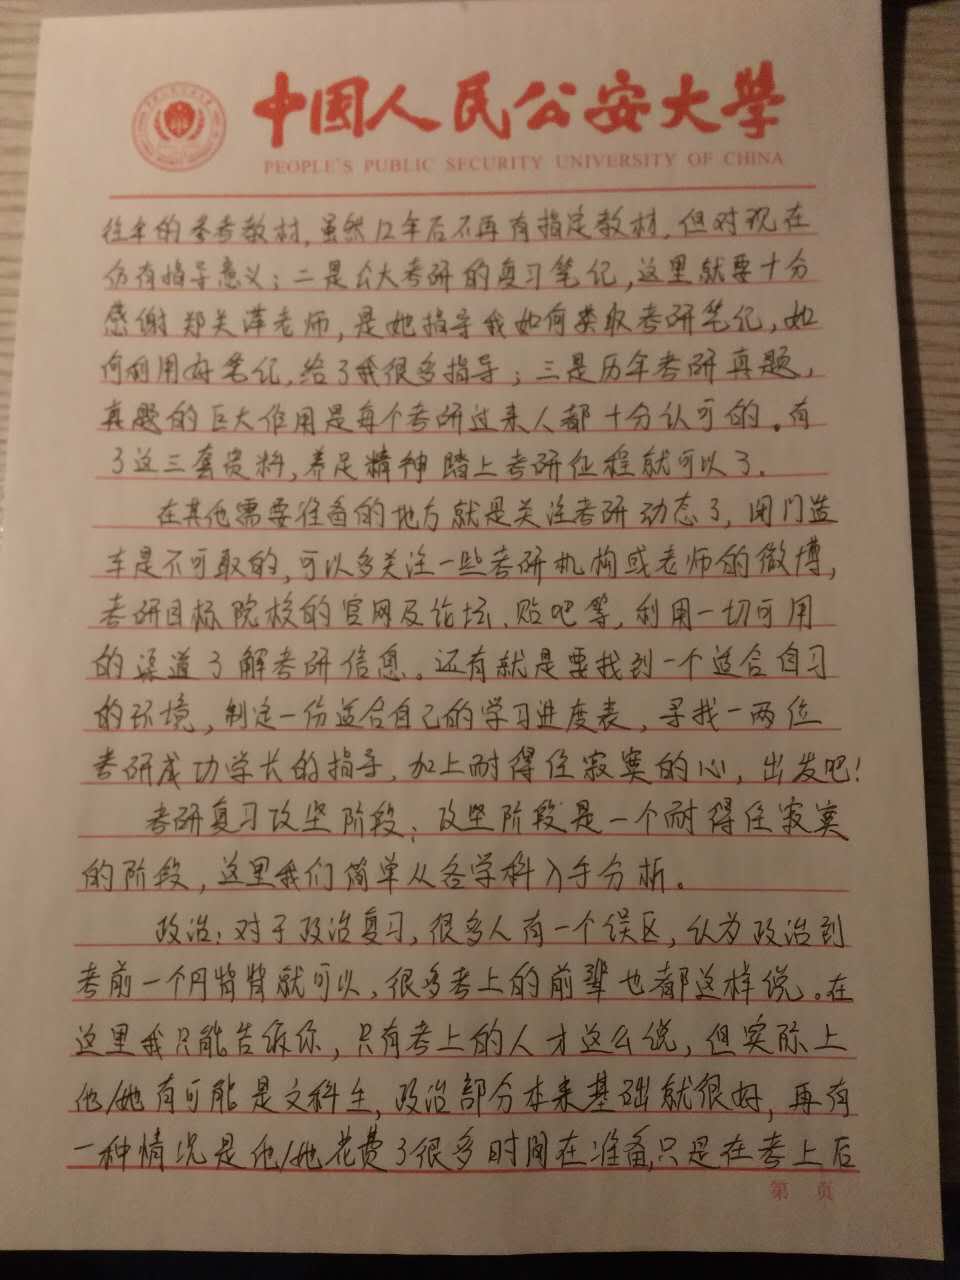 中国人民公安大學
PEOPLE'S PUBLIC SECURITY UNIVERSITY OF CHINA
往年的参考教材,虽然12年后不再有指定教材,但对现在
仍有指导意义;二是公大考研的复习笔记,这里就要十分
感谢郑关萍老师,是她指导我如何类取考研笔记,如
何利用好笔记,给了我很多指导;三是历年考研真题,
真题的巨大作用是每个考研过来人都十分认可的。有
了这三套资料,养足精神踏上考研征程就可以了.
在其他需要准备的地方就是关注考研动态了,闭门造
车是不可取的,可以多关注一些考研机构或老师的微博,
考研目标院校的官网及论坛、贴吧等,利用一切可用
的渠道了解考研信息。还有就是要找到一个适合自习
的环境,制定一份适合自己的学习进度表,寻找一两位
考研成功学长的指导,加上耐得住寂寞的心,出发吧!
考研复习攻坚阶段:攻坚阶段是一个耐得住寂寞
的阶段,这里我们简单从各学科入手分析。
政治:对于政治复习,很多人有一个误区,认为政治到
考前一个月背背就可以,很多考上的前辈也都这样说。在
这里我只能告诉你,只有考上的人才这么说,但实际上
他/她有可能是文科生,政治部分本来基础就很好,再有
一种情况是他/她花费了很多时间在准备,只是在考上后
第 页